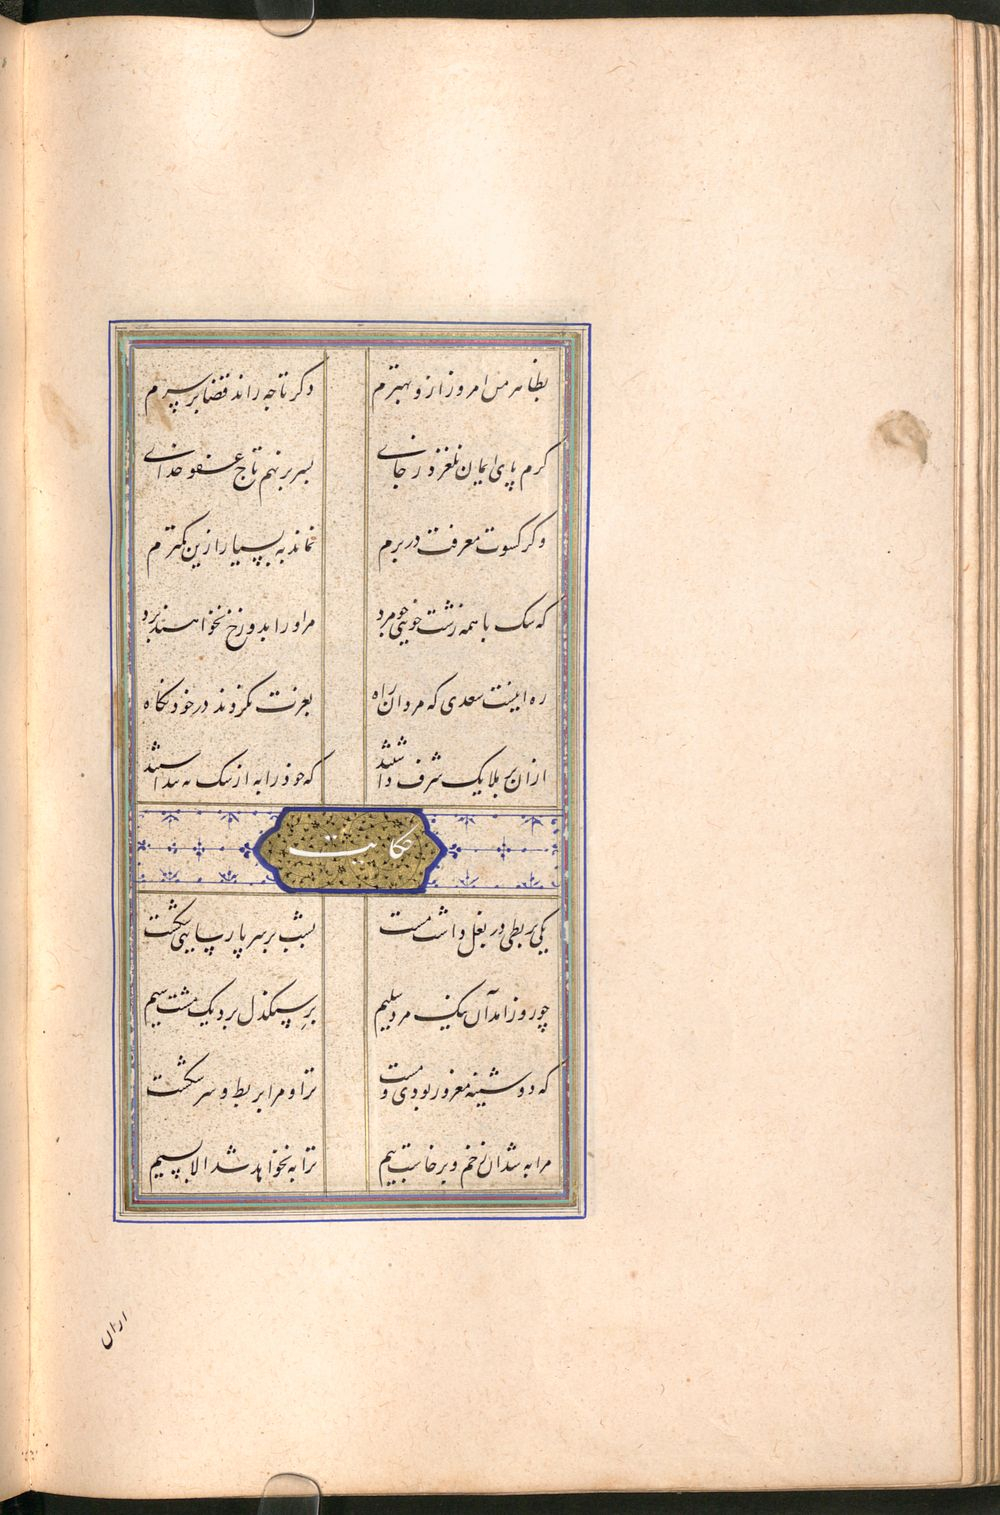 بظاهر من امروز ازو بهترم دکر تا چه راند قضا بر سرم
کرم پای ایمان نلغزد ز جای بسر بر نهم تاج عفو خدای
وکر کسوت معرفت در برم نماند به بسیار ازین کمترم
که سک با همه زشت خویی چو مرد مر او را بدوزخ نخواهند برد
ره اینست سعدی که مردان راه بعزت نکردند در خود نکاه
از ان بر ملایک شرف داشتند که خود را به از سک نه پنداشتند
حکایت
یکی بربطی در بغل داشت مست بشب بر سر پارسایی شکست
چو روز امد آن نیک مرد سلیم بر سنکدل برد یک مشت سیم
که دوشینه مغرور بودی و مست ترا و مرا بربط و سر شکست
مرا به شد ان زخم و برخاست بیم ترا به نخواهد شد الا بسیم
ازان